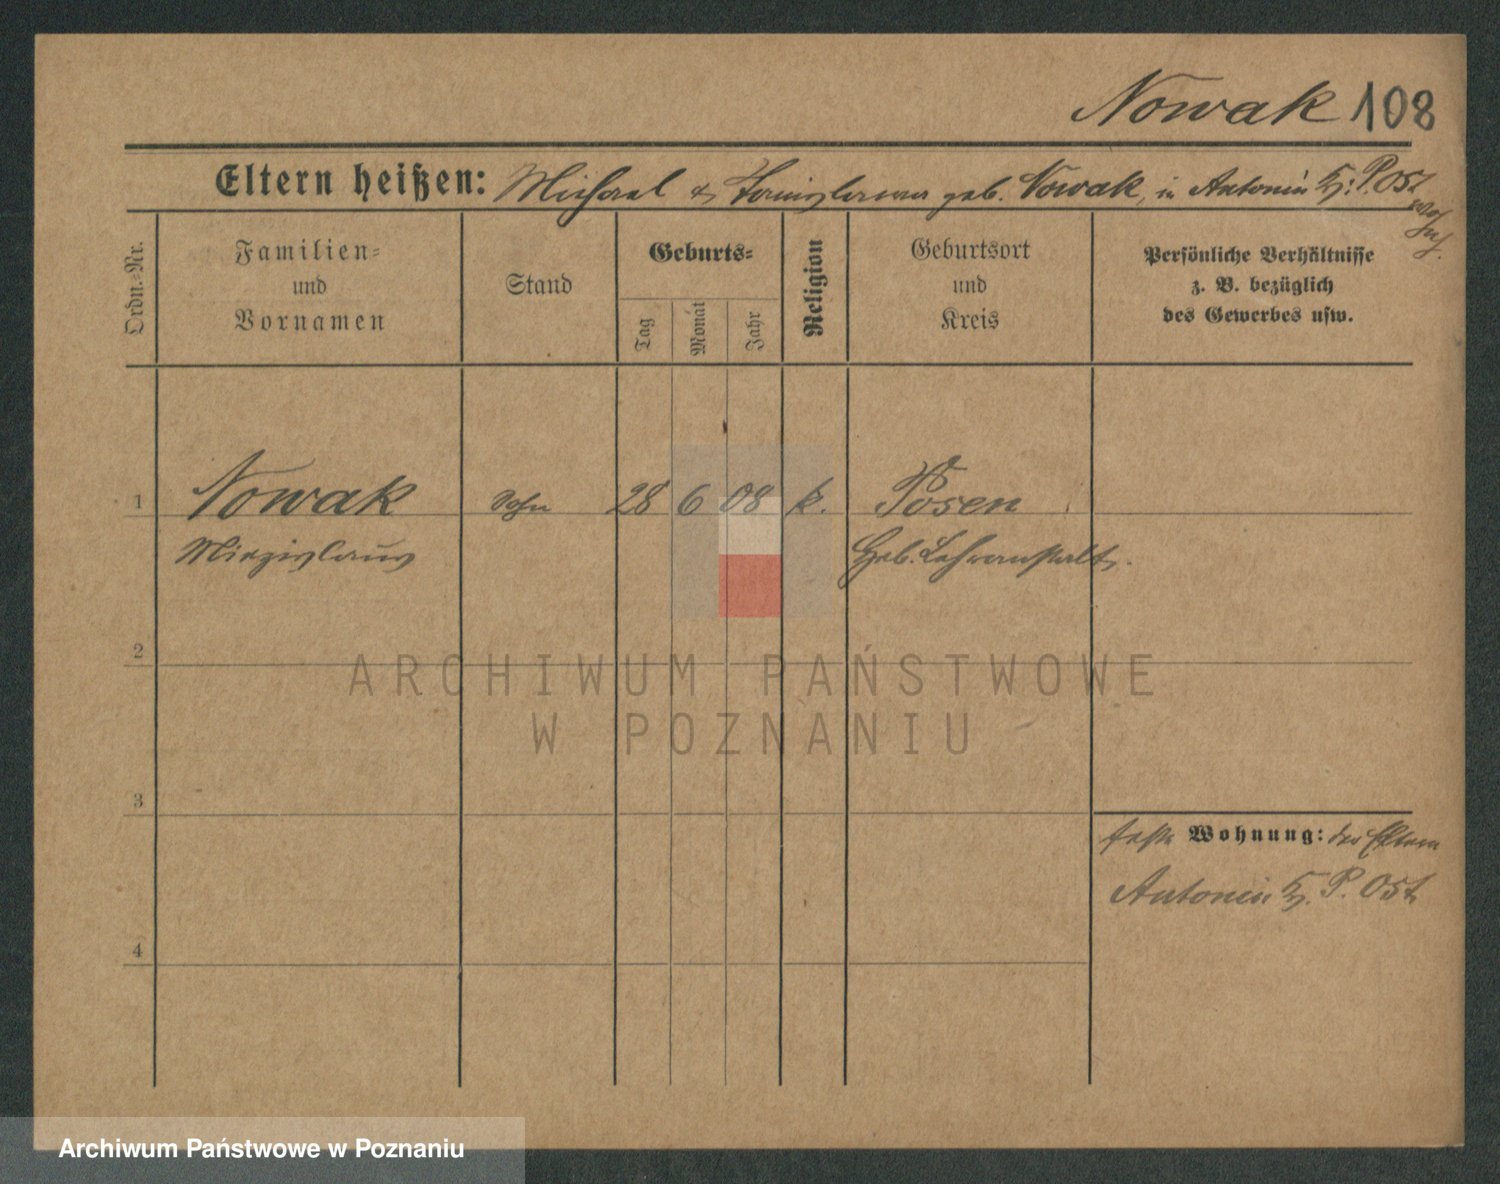 Nowak 108
Eltern heißen: Michael & geb. Nowak, in Antonin Kr. P. Ost
wohnh.
Ordn.-Nr.
Familien-
und
Vornamen
Stand
Geburts-
Tag
Monat
Jahr
Religion
Geburtsort
und
Kreis
Persönliche Verhältnisse
z. B. bezüglich
des Gewerbes usw.
1 Nowak Sohn 28 6 08 k. Posen
Miezislaus Heb. Lehranstalt.
2
3
feste Wohnung: der Eltern
Antonin Kr. P. Ost
4
ARCHIWUM PAŃSTWOWE
W POZNANIU
Archiwum Państwowe w Poznaniu